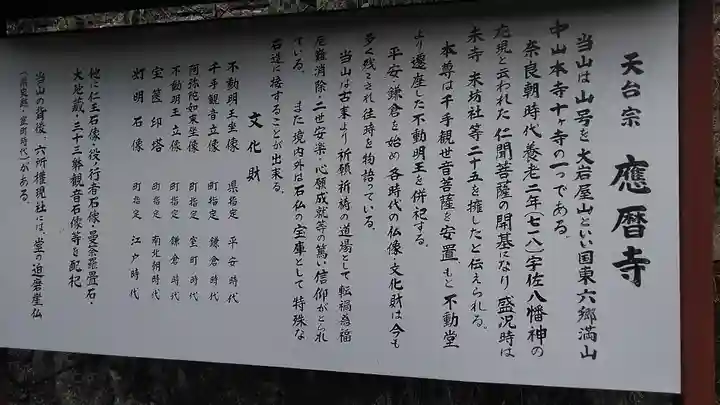 天台宗 應暦寺
当山は山号を大岩屋山といい国東六郷満山
中山本寺十ヶ寺の一つである。
奈良朝時代養老二年(七一八)宇佐八幡神の
応現と云われた仁聞菩薩の開基になり盛況時は
末寺末坊社等二十五を擁したと伝えられる。
本尊は千手観世音菩薩を安置、もと不動堂
より遷座した不動明王を併祀する。
平安、鎌倉を始め各時代の仏像、文化財は今も
多く残こされ往時を物語っている。
当山は古来より祈願祈祷の道場として転禍為福
厄難消除・二世安楽・心願成就等の篤い信仰がとられ
ている。また境内外は石仏の宝庫として特殊な
石造に接することが出来る。
文化財
不動明王坐像 県指定 平安時代
千手観音立像 町指定 鎌倉時代
阿弥陀如来坐像 町指定 室町時代
不動明王立像 町指定 鎌倉時代
宝篋印塔 町指定 南北朝時代
灯明石像 町指定 江戸時代
他に仁王石像・役ノ行者石像・曼荼羅畳石・
大地蔵・三十三観音石像等を配祀
当山の背後、六所権現社には、堂の迫磨崖仏
(県史跡・室町時代)がある。